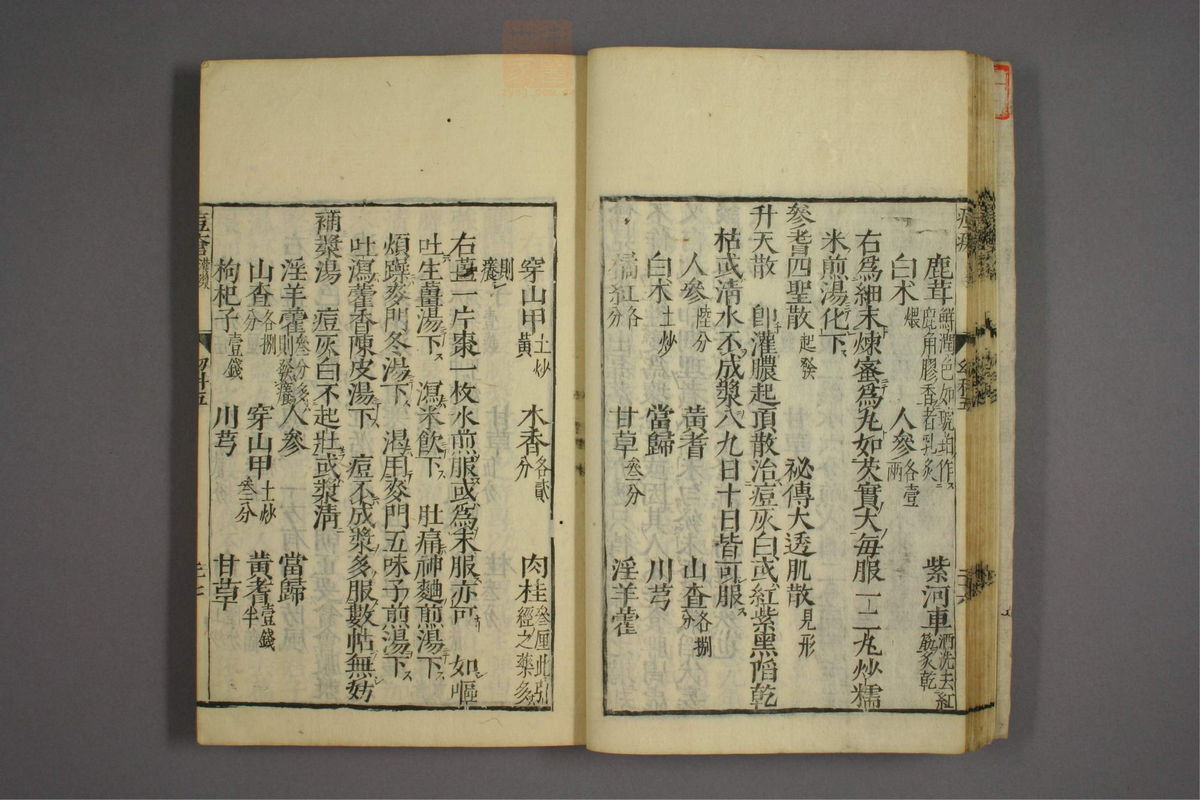 鹿茸鮮潤色如琥珀作鹿角膠香者乳炙 紫河車酒洗去紅筋炙乾
白朮煨 人參各壹兩
右爲細末煉蜜爲丸如芡實大每服一二丸炒糯
米煎湯化下
參耆四聖散起發 祕傳大透肌散見形
升天散 卽灌膿起頂散治痘灰白或紅紫黑陷乾
枯或清水不成漿八九日十日皆可服
人參陸分 黃耆 山查各捌分
白朮土炒 當歸 川芎
橘紅各分 甘草叁分 淫羊藿
穿山甲土炒黃 木香各貳分 肉桂叁厘此引經之藥多
則癢
右薑一片棗一枚水煎服或爲末服亦可 如嘔
吐生薑湯下 瀉米飲下 肚痛神麯煎湯下
煩躁麥門冬湯下 渴用麥門五味子煎湯下
吐瀉藿香陳皮湯下 痘不成漿多服數帖無妨
補漿湯 痘灰白不起壯或漿清
淫羊藿叁分多則發癢 人參 當歸
山查各捌分 穿山甲土炒叁分 黃耆壹錢半
枸杞子壹錢 川芎 甘草